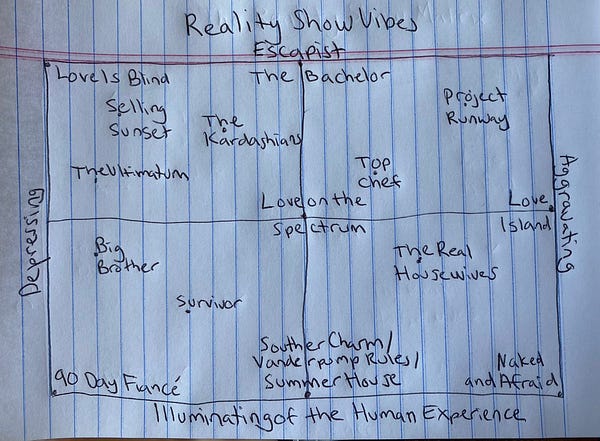 Reality Show Vibes
Escapist
Love Is Blind
The Bachelor
Selling
Sunset
The
Kardashians
Project
Runway
The Ultimatum
Top
Chef
Love on the
Spectrum
Love
Island
Depressing
Aggravating
Big
Brother
The Real
Housewives
Survivor
Souther Charm/
Vanderpump Rules/
Summer House
90 Day Fiancé
Naked
and Afraid
Illuminating of the Human Experience